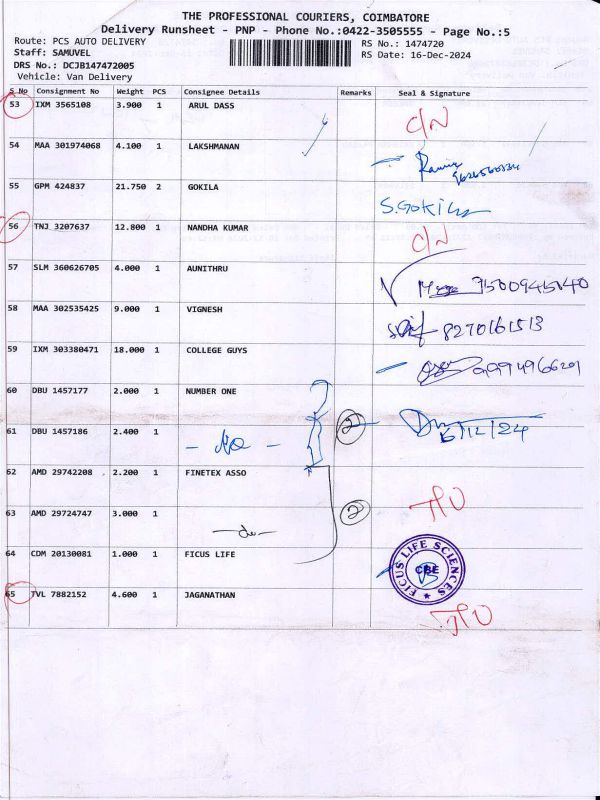 THE PROFESSIONAL COURIERS, COIMBATORE
Delivery Runsheet - PNP - Phone No.:0422-3505555 - Page No.:5
Route: PCS AUTO DELIVERY RS No.: 1474720
Staff: SAMUVEL RS Date: 16-Dec-2024
DRS No.: DCJB147472005
Vehicle: Van Delivery
S No Consignment No Weight PCS Consignee Details Remarks Seal & Signature
53 IXM 3565108 3.900 1 ARUL DASS C/N
54 MAA 301974068 4.100 1 LAKSHMANAN
55 GPM 424837 21.750 2 GOKILA S.GOKILA
56 TNJ 3207637 12.800 1 NANDHA KUMAR C/N
57 SLM 360626705 4.000 1 AUNITHRU
58 MAA 302535425 9.000 1 VIGNESH 8270161513
59 IXM 303380471 18.000 1 COLLEGE GUYS
60 DBU 1457177 2.000 1 NUMBER ONE
61 DBU 1457186 2.400 1 - do - 2
62 AMD 29742208 2.200 1 FINETEX ASSO
63 AMD 29724747 3.000 1 -do- 2
64 CDM 20130081 1.000 1 FICUS LIFE FICUS LIFE SCIENCES CBE
65 TVL 7882152 4.600 1 JAGANATHAN